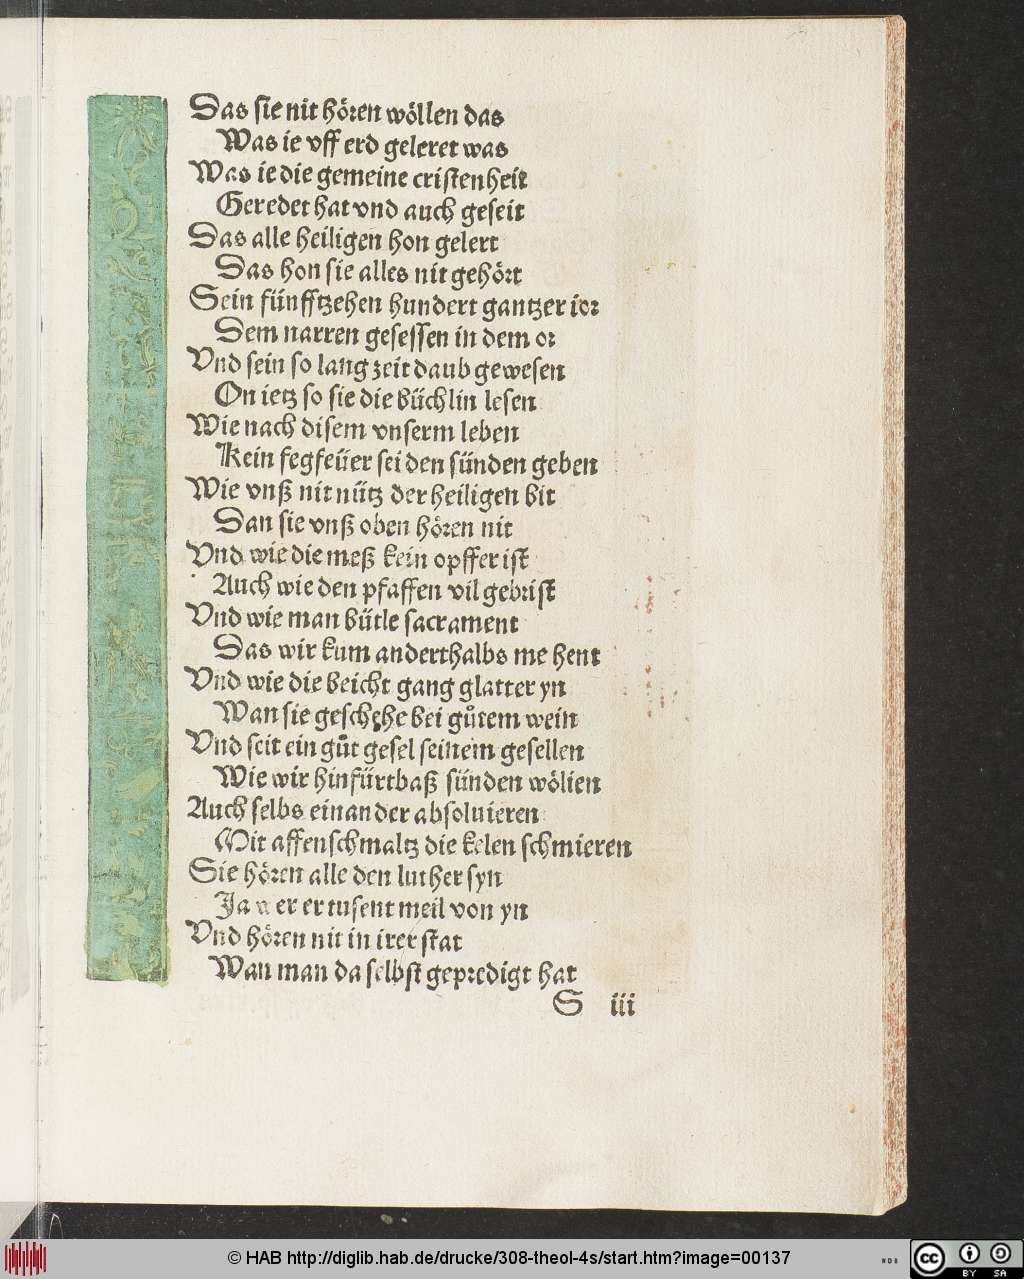 Das sie nit hören wöllen das
Was ie vff erd geleret was
Was ie die gemeine cristenheit
Geredet hat vnd auch geseit
Das alle heiligen hon gelert
Das hon sie alles nit gehört
Sein fünfftzehen hundert gantzer ior
Dem narren gesessen in dem or
Vnd sein so lang zeit daub gewesen
On ietz so sie die büchlin lesen
Wie nach disem vnserm leben
Kein fegfeüer sei den sünden geben
Wie vnß nit nütz der heiligen bit
Dan sie vnß oben hören nit
Vnd wie die meß kein opffer ist
Auch wie den pfaffen vil gebrist
Vnd wie man bütle sacrament
Das wir kum anderthalbs me hent
Vnd wie die beicht gang glatter yn
Wan sie geschehe bei gůtem wein
Vnd seit ein gůt gesel seinem gesellen
Wie wir hinfürtbaß sünden wöllen
Auch selbs einander absoluieren
Mit affenschmaltz die kelen schmieren
Sie hören alle den luther syn
Ja wer er tusent meil von yn
Vnd hören nit in irer stat
Wan man da selbst gepredigt hat
S iii
© HAB http://diglib.hab.de/drucke/308-theol-4s/start.htm?image=00137
WDB
cc BY SA